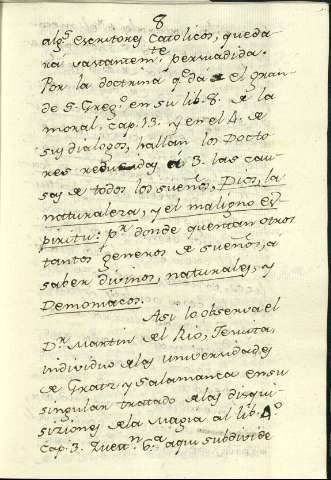 8
algs. escritores Catolicos, queda
ra vastantemte. persuadida.
Por la doctrina qe. da el gran
de S. Grego. en su lib. 8. de la
moral, cap. 13. y en el 4. de
sus dialogos, hallan los Docto
res reducidas a 3. las cau
sas de todos los sueños, Dios, la
naturaleza, y el maligno es
piritu: pr. donde quentan otros
tantos generos de sueños, a
saber divinos, naturales, y
Demoniacos.
Asi lo observa el
Dr. Martin del Rio, Jesuita,
individuo de las universidades
de Gratz y Salamanca en su
singular tratado de las disqui
siziones de la Magia al lib. 4o.
cap. 3. Quest.n 6.a aqui subdivide